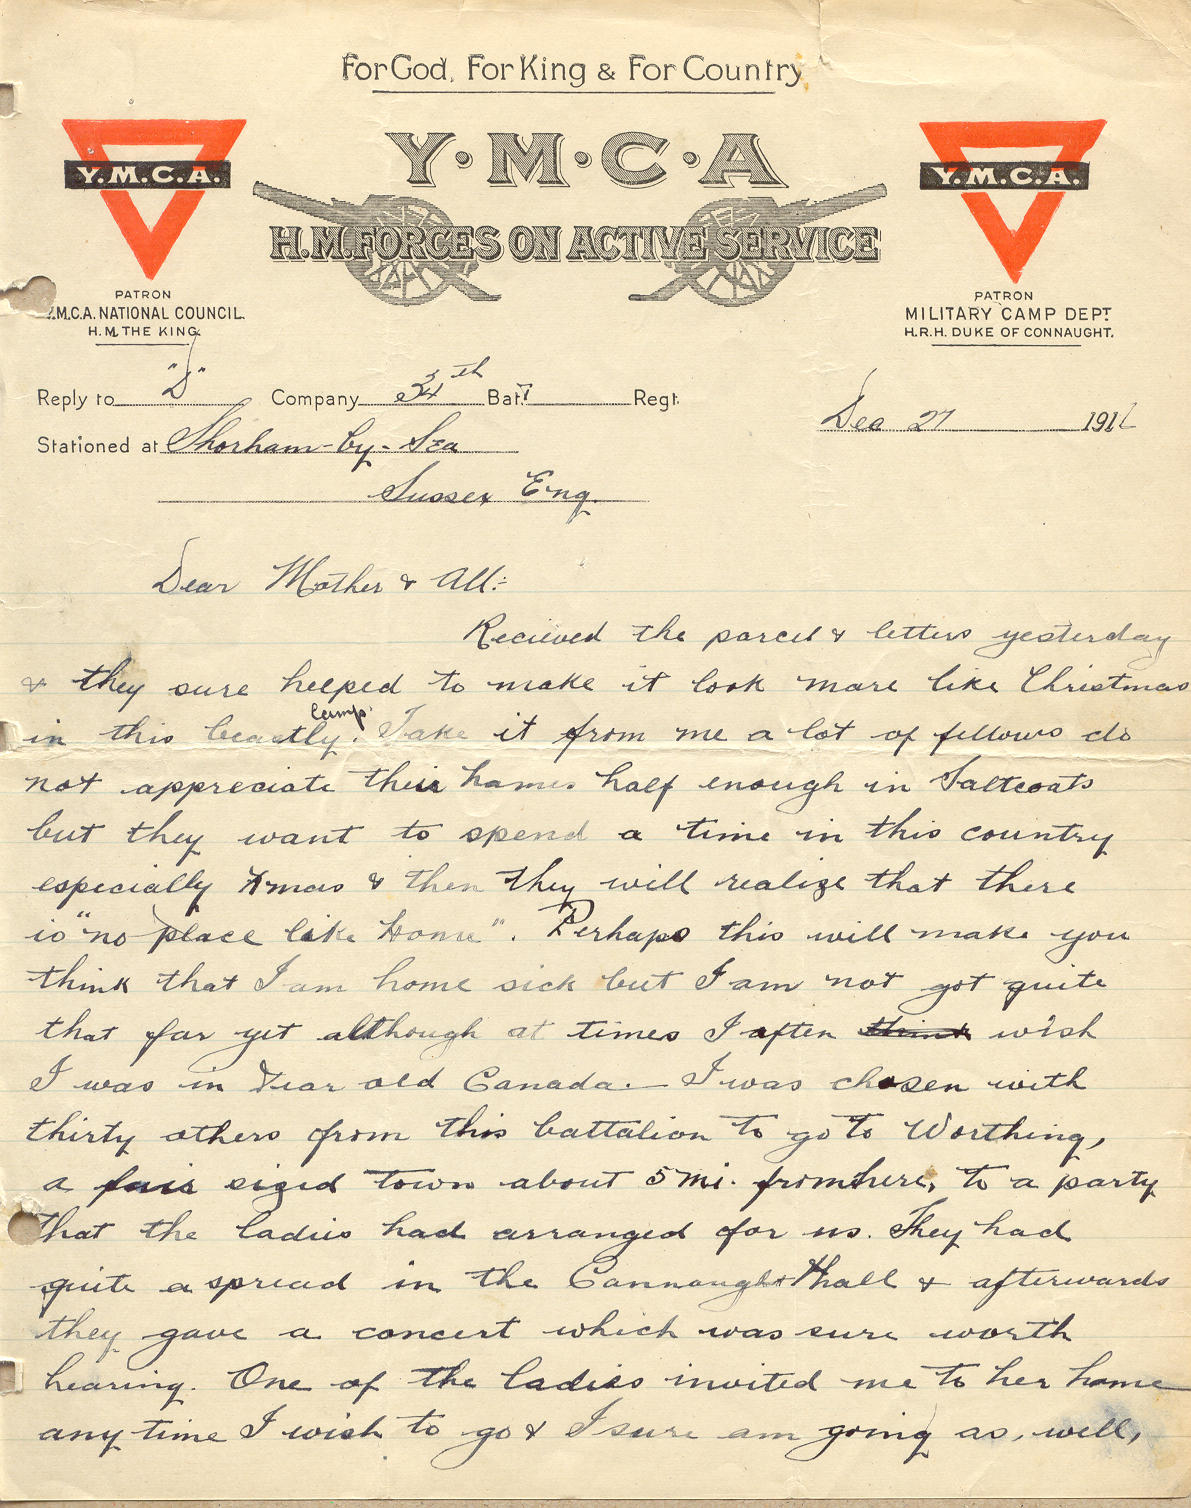 For God, For King & For Country
Y·M·C·A
Y.M.C.A.
Y.M.C.A.
H.M. FORCES ON ACTIVE SERVICE
PATRON
Y.M.C.A. NATIONAL COUNCIL.
H.M. THE KING.
PATRON
MILITARY CAMP DEPT
H.R.H. DUKE OF CONNAUGHT.
Reply to "D" Company 34th Batt Regt.
Stationed at Shorham-by-Sea
Sussex Eng.
Dec 27 191
Dear Mother & All:-
Recieved the parcel & letters yesterday
& they sure helped to make it look more like Christmas
in this beastly camp. Take it from me a lot of fellows do
not appreciate their homes half enough in Saltcoats
but they want to spend a time in this country
especially Xmas & then they will realize that there
is "no place like Home". Perhaps this will make you
think that I am home sick but I am not got quite
that far yet although at times I often think wish
I was in Dear old Canada.— I was chosen with
thirty others from this battalion to go to Worthing,
a fair sized town about 5 mi. from here, to a party
that the ladies had arranged for us. They had
quite a spread in the Connaught Hall & afterwards
they gave a concert which was sure worth
hearing. One of the ladies invited me to her home
any time I wish to go & I sure am going as, well,